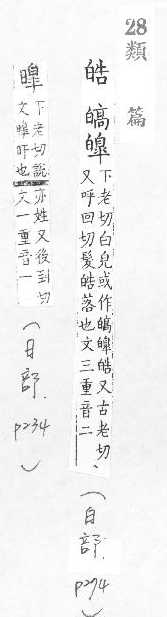 28類篇
皓 皜 皞
下老切白皃或作皜皞皓又古老切、
又呼回切髮皓落也文三重音二
(白部. p274)
暤
下老切說
文暤旰也
亦姓又後到切
文一重音一
(日部. p234)